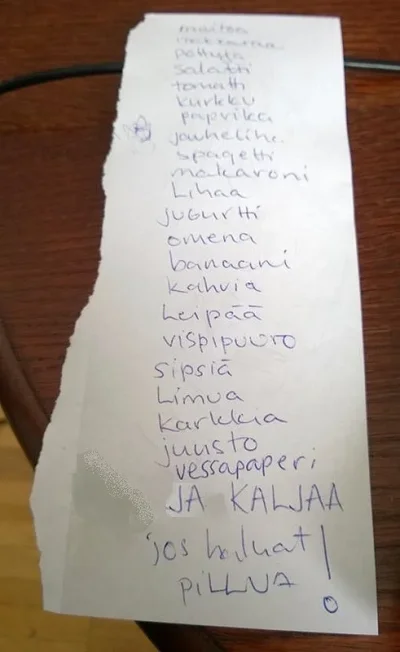 maitoa
pottuja
salatti
tomatti
kurkku
paprika
jauhelihe.
spagetti
makaroni
Lihaa
jugurtti
omena
banaani
kahvia
Leipää
vispipuuro
sipsiä
Limua
karkkia
juusto
vessapaperi
JA KALJAA
jos haluat
PILLUA!